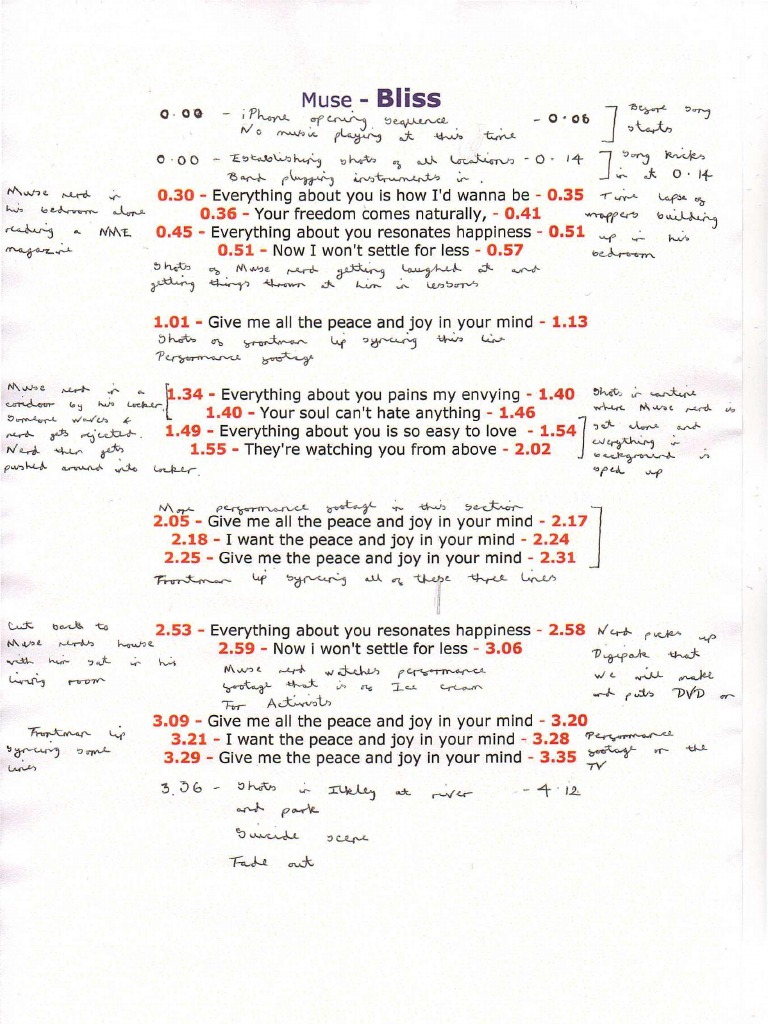 Muse - Bliss
0.00 - iPhone opening sequence - 0.06
No music playing at this time
Before song
starts
0.00 - Establishing shots of all locations - 0.14
Band plugging instruments in.
Song kicks
in at 0.14
Muse nerd in
his bedroom alone
reading a NME
magazine
0.30 - Everything about you is how I'd wanna be - 0.35
0.36 - Your freedom comes naturally, - 0.41
0.45 - Everything about you resonates happiness - 0.51
0.51 - Now I won't settle for less - 0.57
Time lapse of
wrappers building
up in his
bedroom
Shots of Muse nerd getting laughed at and
getting things thrown at him in lessons
1.01 - Give me all the peace and joy in your mind - 1.13
Shots of frontman lip syncing this line
Performance footage
Muse nerd in a
corridoor by his locker.
Someone waves &
nerd gets rejected.
Nerd then gets
pushed around into locker.
1.34 - Everything about you pains my envying - 1.40
1.40 - Your soul can't hate anything - 1.46
1.49 - Everything about you is so easy to love - 1.54
1.55 - They're watching you from above - 2.02
Shots in canteen
where Muse nerd is
sat alone and
everything in
background is
sped up
More performance footage in this section
2.05 - Give me all the peace and joy in your mind - 2.17
2.18 - I want the peace and joy in your mind - 2.24
2.25 - Give me the peace and joy in your mind - 2.31
Frontman lip syncing all of these three lines
Cut back to
Muse nerds house
with him sat in his
living room
2.53 - Everything about you resonates happiness - 2.58
2.59 - Now i won't settle for less - 3.06
Nerd picks up
Digipak that
we will make
and puts DVD on
Muse nerd watches performance
footage that is of Ice Cream
For Activists
Frontman lip
syncing some
lines
3.09 - Give me all the peace and joy in your mind - 3.20
3.21 - I want the peace and joy in your mind - 3.28
3.29 - Give me the peace and joy in your mind - 3.35
Performance
footage on the
TV
3.36 - Shots in Ilkley at river - 4.12
and park
Suicide scene
Fade out